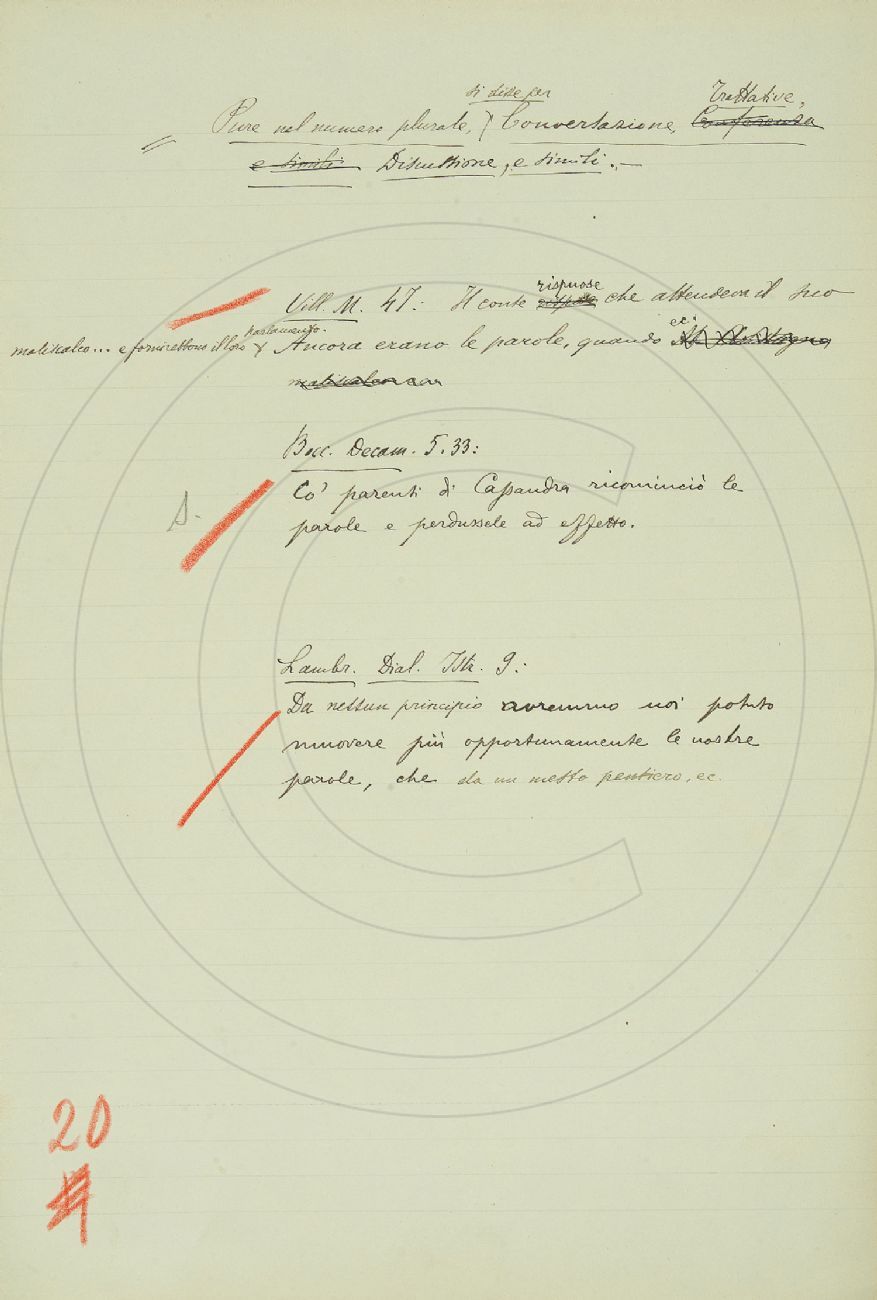 si disse per Trattative,
= Pure nel numero plurale, Conversazione, Conferenza
e simili Discussione, e simili. —
Vill. M. 47: Il conte rispuose che attendeva il suo
maliscalco... e fornirettono il loro parlamento. Ancora erano le parole, quando ec.
maliscalco
Bocc. Decam. 5. 33:
Co' parenti di Cassandra ricominciò le
parole e perdussele ad effetto.
S.
Lambr. Dial. Istr. 9:
Da nessun principio avremmo noi potuto
muovere più opportunamente le nostre
parole, che da un mesto pensiero, ec.
20